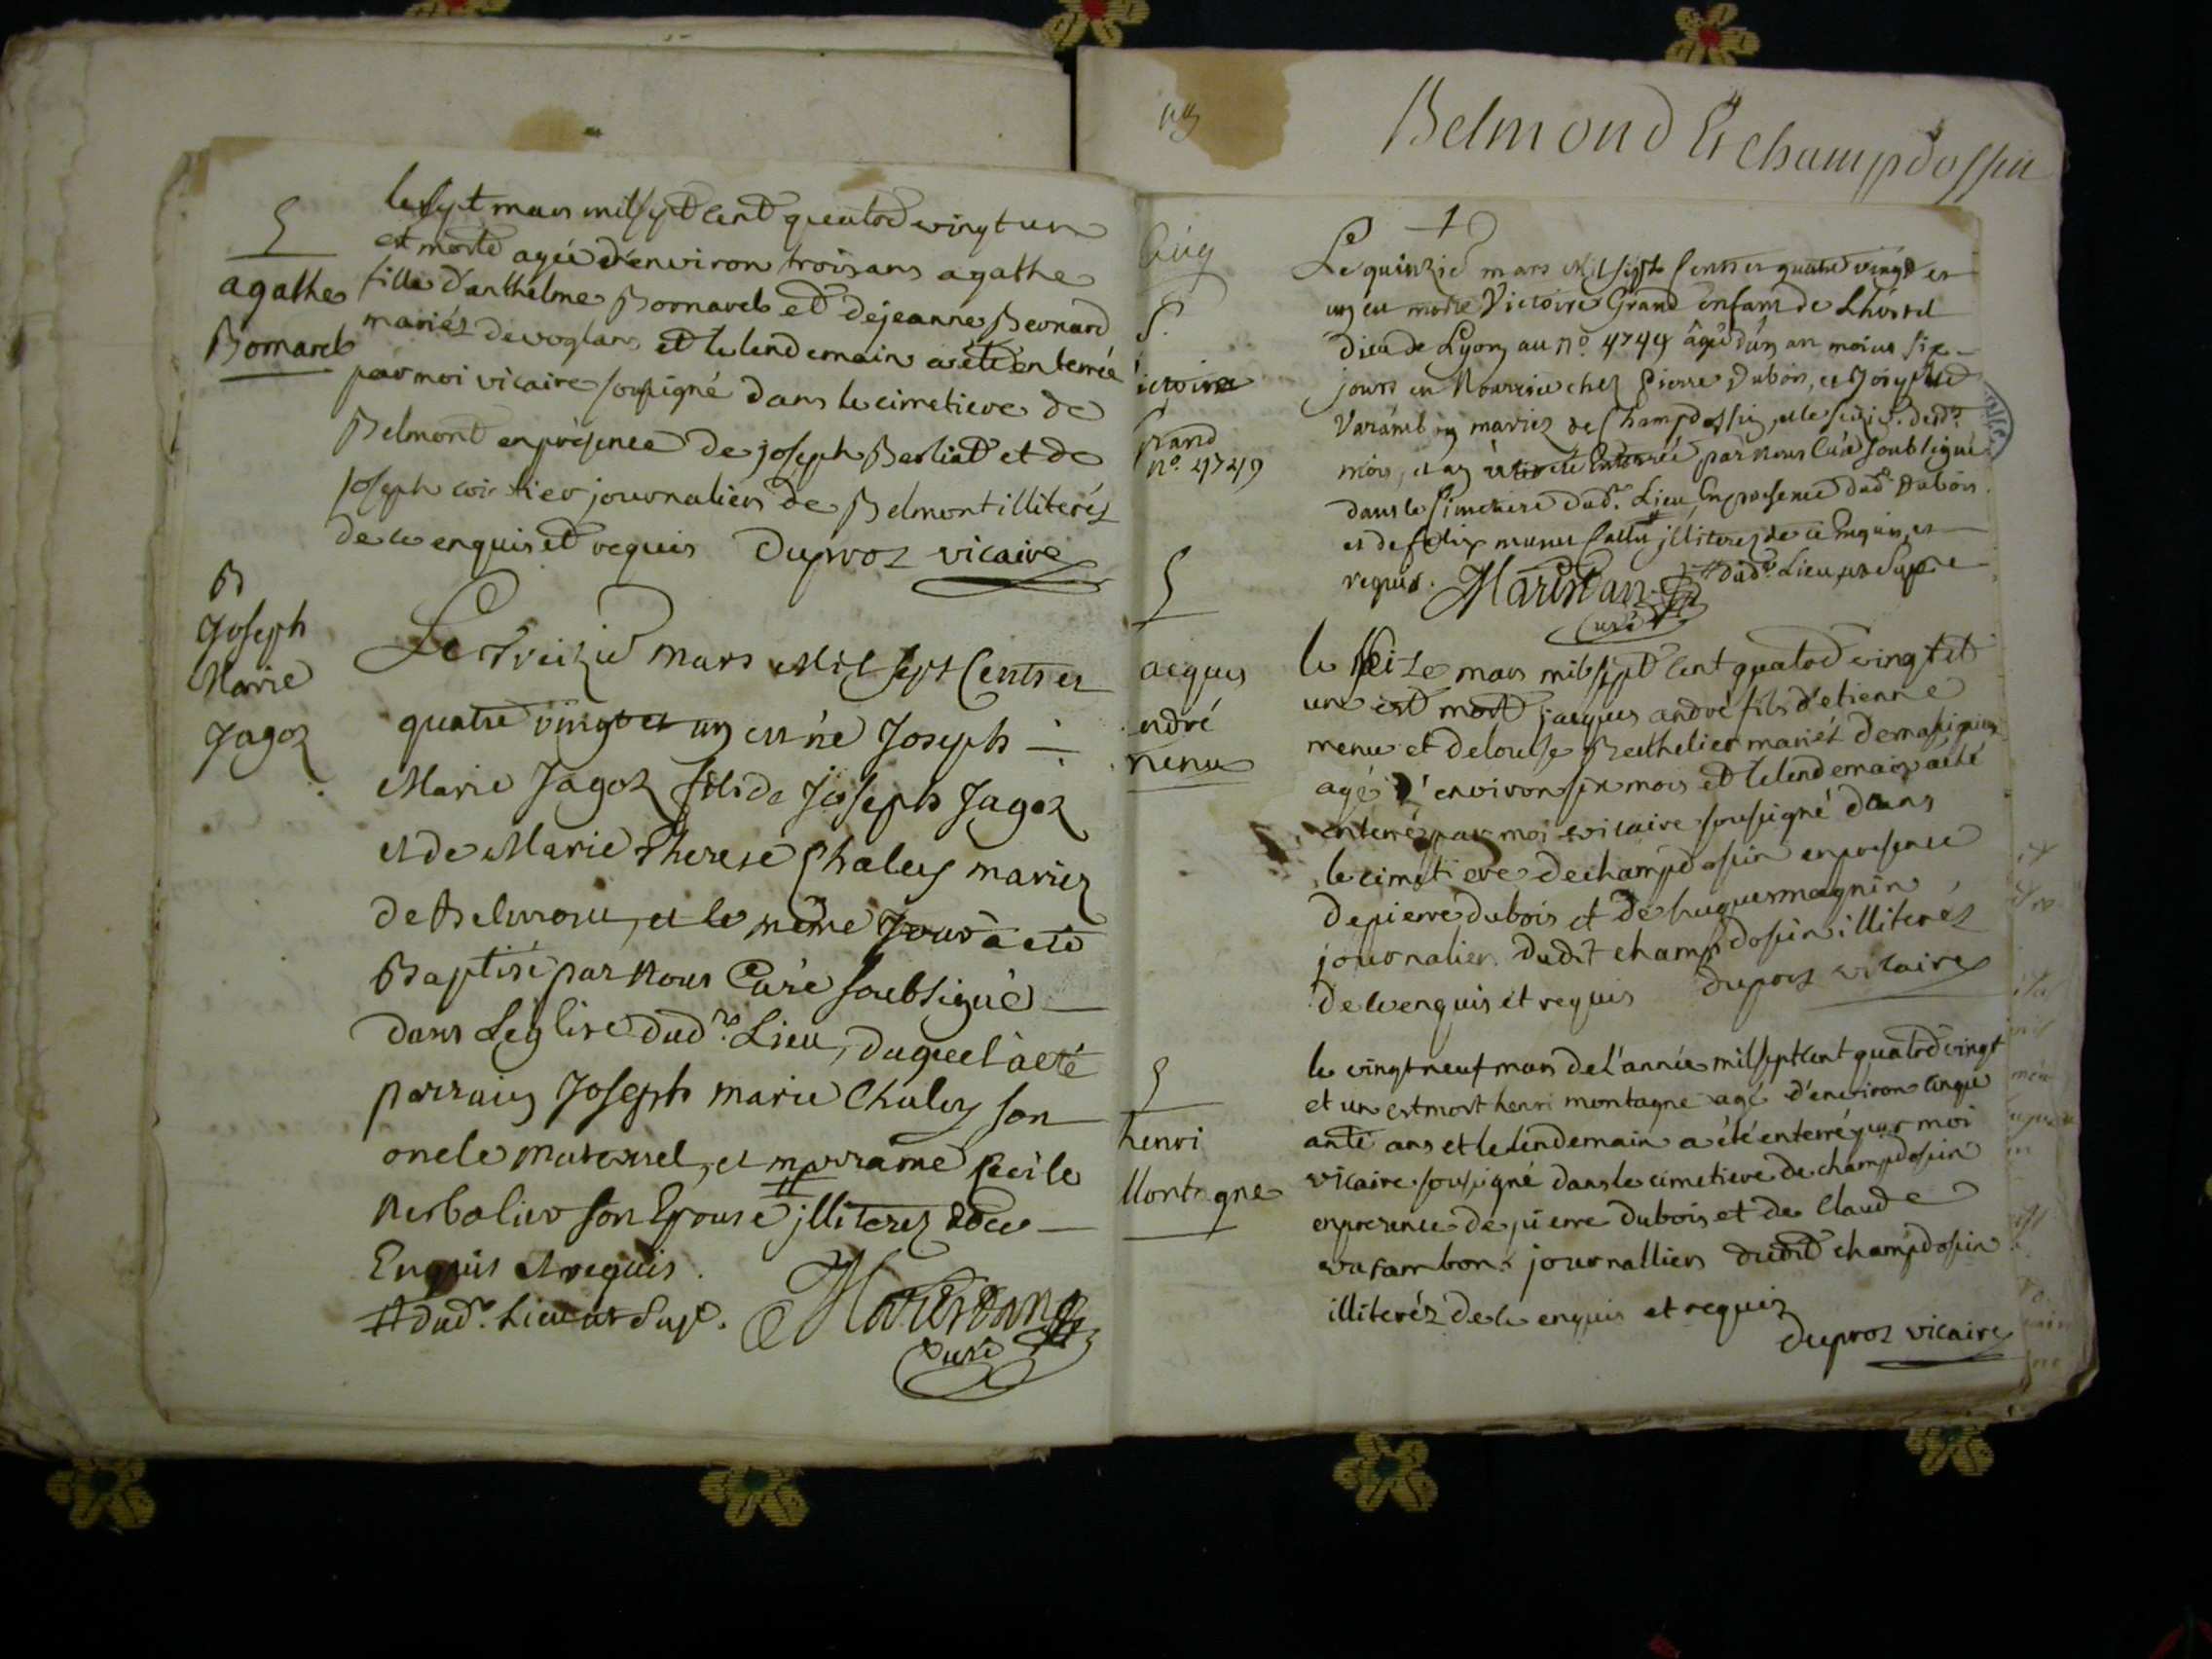 S
agathe
Bornarel
le sept mars mil sept cent quatre vingt un
est morte agée d'environ trois ans agathe
fille d'anthelme Bornarel et de jeanne Bernard
mariés de voglans et le lendemain a été enterrée
par moi vicaire soussigné dans le cimetiere de
Belmont en présence de joseph Berliat et de
joseph journaliers de Belmont illiterés
de ce enquis et requis Duproz vicaire
B
Joseph
Marie
Jagoz
Le treizie mars Mil sept Cents et
quatre vingt et un est né Joseph
Marie Jagoz fils de Joseph Jagoz
et de Marie Therese Chaley mariez
de Belmont, et le même Jour à eté
Baptisé par Nous Curé soubsigné
dans Leglise dud. Lieu, duquel à eté
parrain Joseph marie Chaley son
oncle maternel, et marraine Cecile
Berbalier son Epouse # illiterez de ce
Enquis et requis.
# dud. Lieu ut Supr. Maristan
Curé
Belmond Et Champdossin
S.
ictoire
Grand
no. 4749
Le quinzie mars Mil sept Cents et quatre vingt et
un est morte Victoire Grand enfant de Lhôtel
dieu de Lyon au no. 4749 âgé d'un an moins six
jours en Nourrice chez Pierre Dubois, et Josephte
Varambon mariez de Champdossin, et le seizie. dud.
mois, et an à été Enterré par Nous Curé soubsigné
dans le Cimetiere dud. Lieu, En presence dud. Dubois
et de felix # illiterez de ce Enquis, et
requis. Maristan # dud. Lieu ut Supr
Curé
S
acques
ndré
menu
le seize mars mil sept cent quatre vingt et
un est mort jacques andré fils d'etienne
menu et de louise Berthelier mariés de
agé d'environ six mois et le lendemain a été
enterré par moi vicaire soussigné dans
le cimetiere de champdosin en presence
de pierre dubois et de hugues magnin
journalier dudit champdosin illiterés
de ce enquis et requis Duproz vicaire
S
henri
Montagne
le vingt neuf mars de l'année mil sept cent quatre vingt
et un est mort henri montagne agé d'environ cinqu
ante ans et le lendemain a été enterré par moi
vicaire soussigné dans le cimetiere de champdosin
en presence de pierre dubois et de Claude
varambon journalliers dudit champdosin
illiterés de ce enquis et requis
Duproz vicaire